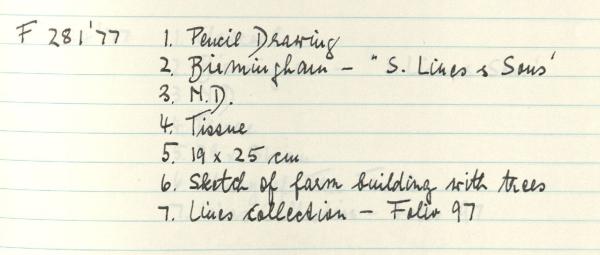 F 281'77 1. Pencil Drawing
2. Birmingham – "S. Lines & Sons'
3. N.D.
4. Tissue
5. 19 x 25 cm
6. Sketch of farm building with trees
7. Lines collection – Folio 97